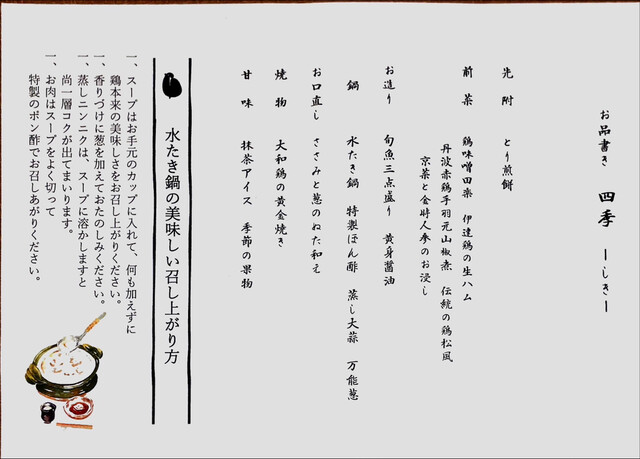 お品書き 四季 ーしきー
先附 とり煎餅
前菜 鶏味噌田楽 伊達鶏の生ハム
丹波赤鶏手羽元山椒煮 伝統の鶏松風
京菜と金時人参のお浸し
お造り 旬魚三点盛り 黄身醤油
鍋 水たき鍋 特製ぽん酢 蒸し大蒜 万能葱
お口直し ささみと葱のぬた和え
焼物 大和鶏の黄金焼き
甘味 抹茶アイス 季節の果物
水たき鍋の美味しい召し上がり方
一、スープはお手元のカップに入れて、何も加えずに
鶏本来の美味しさをお召し上がりください。
一、香りづけに葱を加えておたのしみください。
一、蒸しニンニクは、スープに溶かしますと
尚一層コクが出てまいります。
一、お肉はスープをよく切って
特製のポン酢でお召しあがりください。